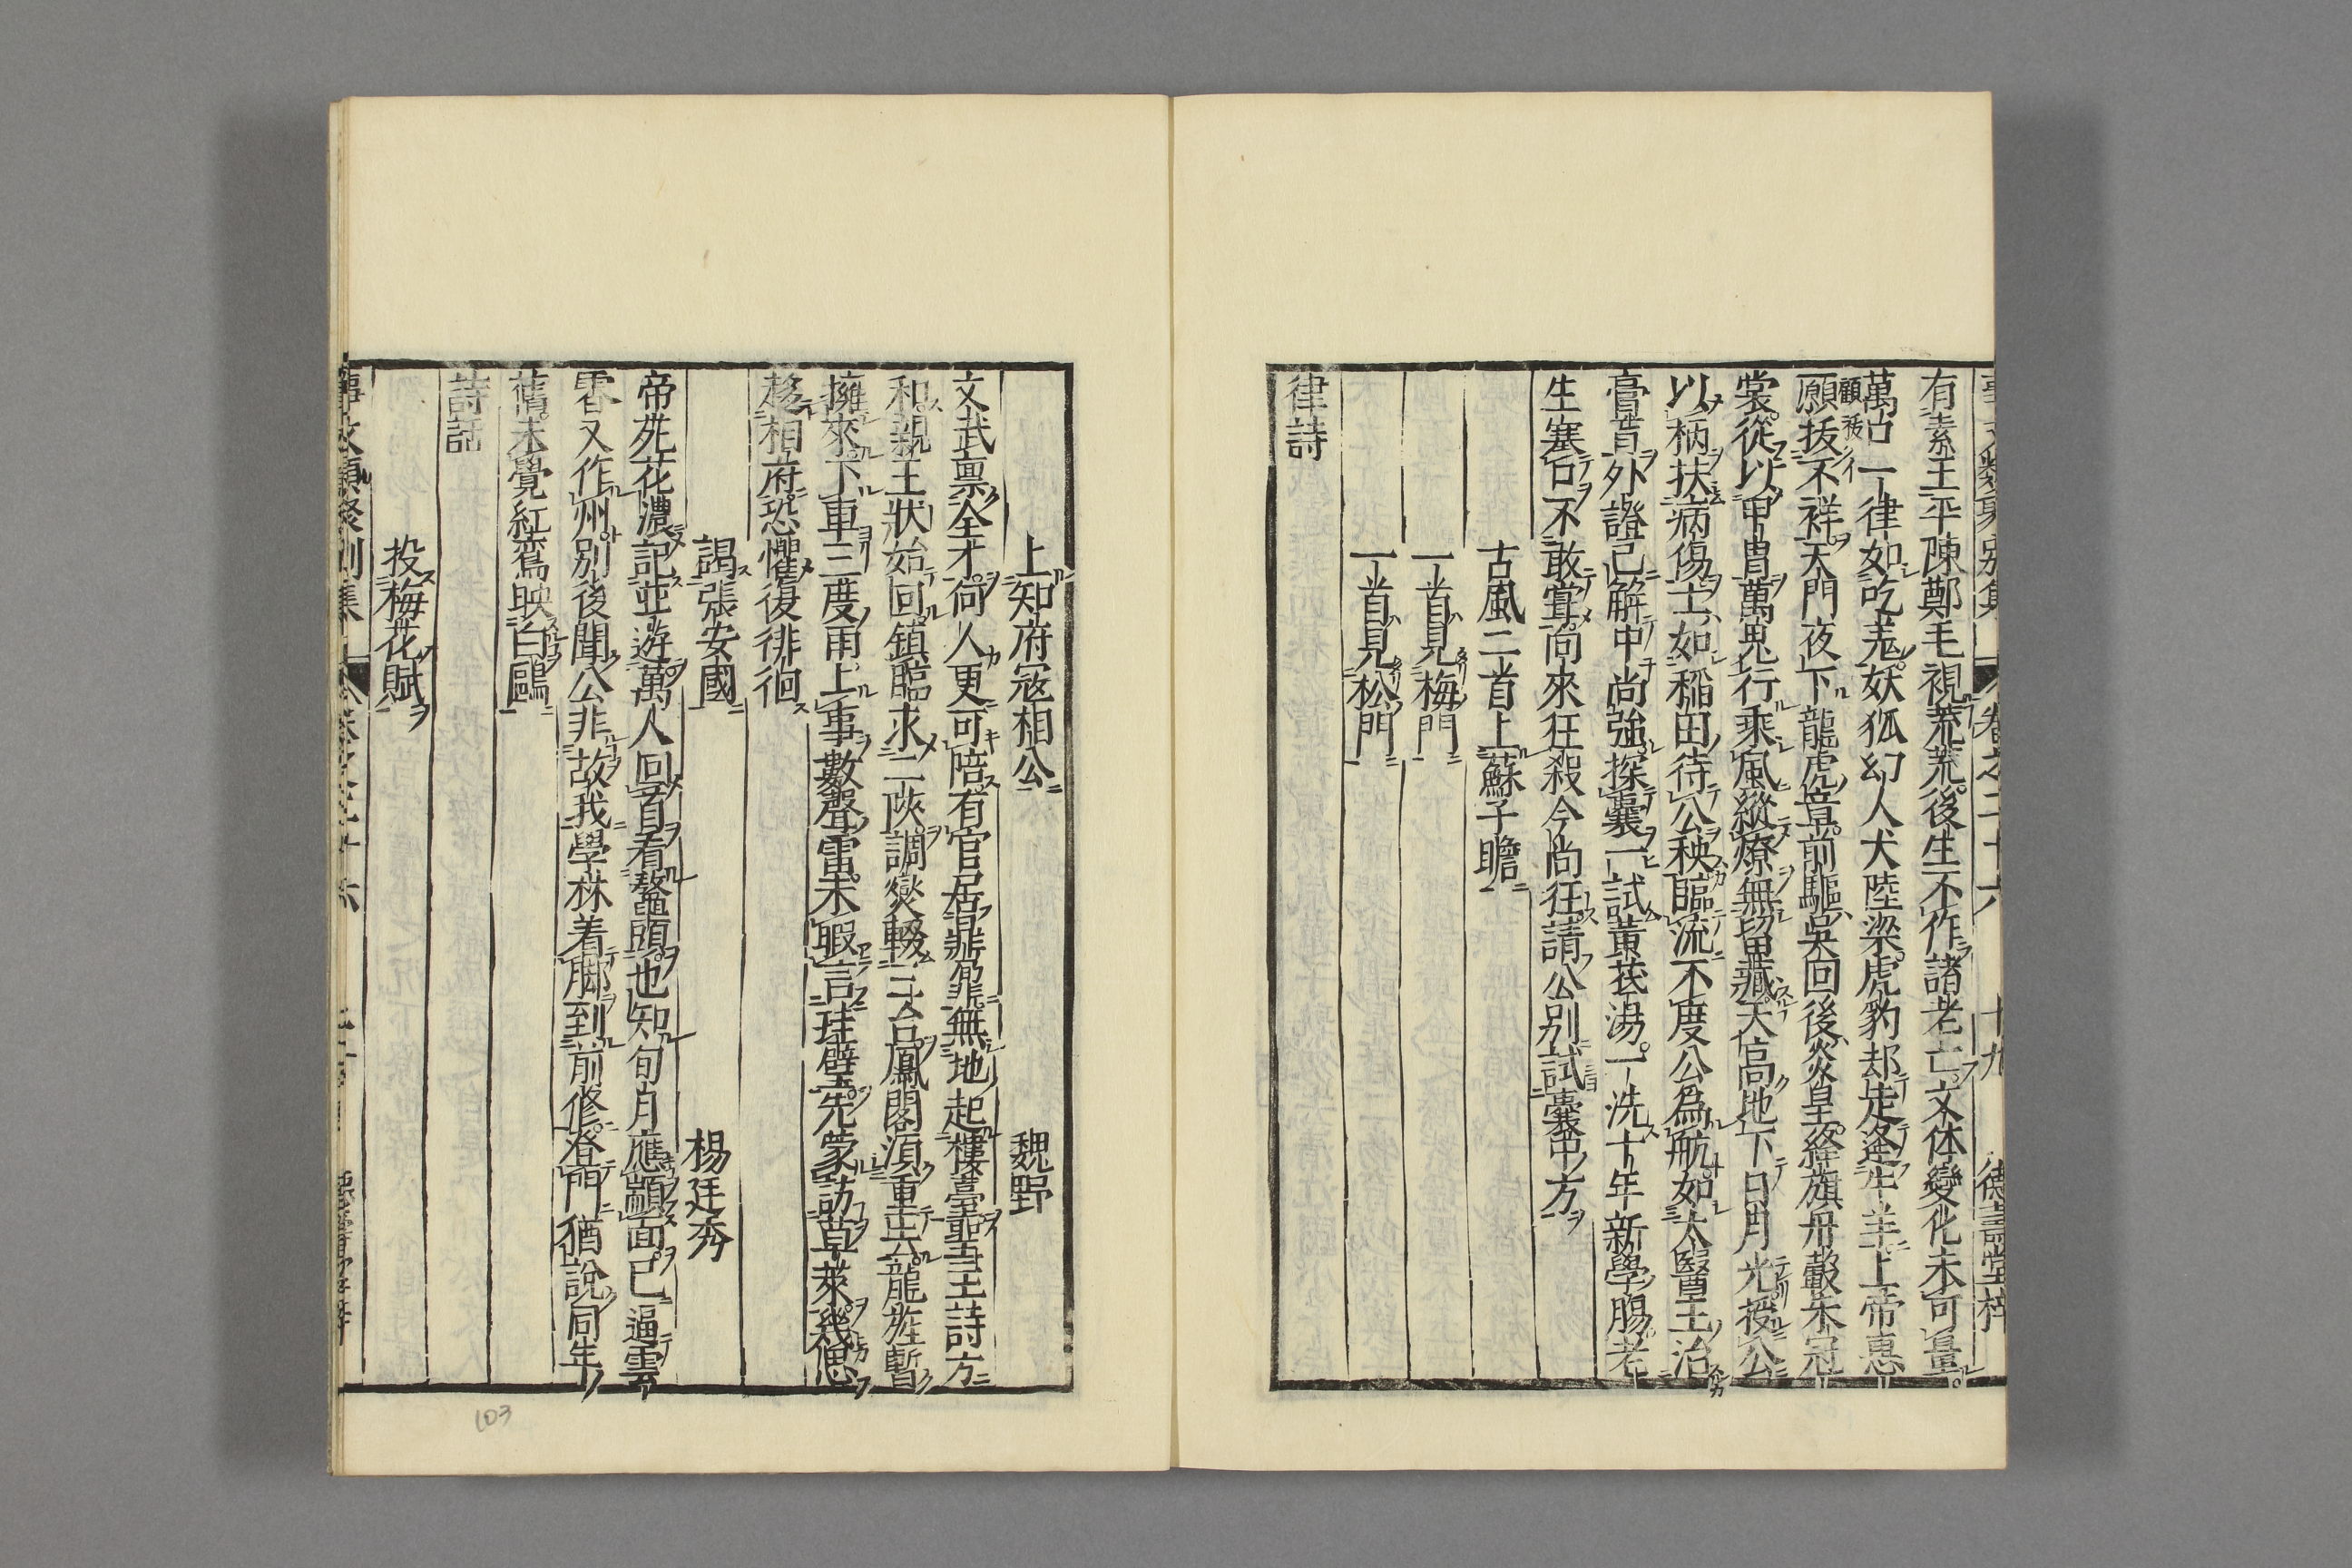 有素王平陳鄭毛視荒荒後生不作諸老亡文体變化未可量
萬口一律如吃羗妖狐幻人犬陸梁虎豹却走逢牛羊上帝惠
顧被イ
願拔不祥天門夜下龍虎章前驅吳回後炎皇絳旗丹轂朱冠
裳從以甲冑萬鬼行乘風縱燎無留藏天高地下日月光授公
以柄扶病傷士如稲田待公秧臨流不度公爲航如太醫王治
膏肓外證已解中尚強探囊一試黄茋湯一洗十年新學膓老
生塞口不敢嘗向來狂殺今尚狂請公別試囊中方
古風二首上蘇子瞻
一首見梅門
一首見松門
律詩
上知府寇相公
魏野
文武禀全才何人更可陪有官居鼎鼐無地起樓臺聖主詩方
和親王狀始回鎮臨求二陝調燮輟三台鳳閣須重去龍旌暫
擁來下車三度雨上事數聲雷未暇言珪璧先蒙訪草萊幾偲
趍相府恐懼復徘徊
謁張安國
楊廷秀
帝苑花濃記並遊萬人回首看鼇頭也知旬月應顓面已逼雲
霄又作州別後聞公非故我學林着脚到前修登門猶說同年
舊未覺紅鸞映白鷗
詩話
投梅花賦
103